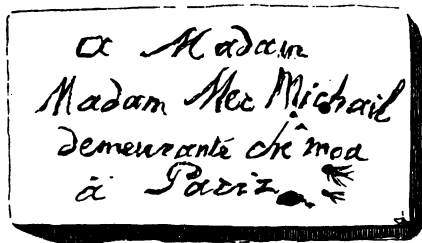 a Madam
Madam Mec Michail
demeuranté chê moa
ä Pariz